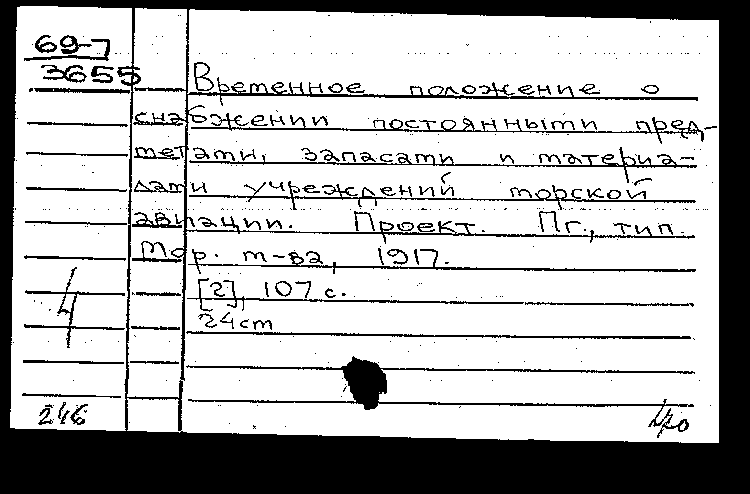 69-7
3655
Временное положение о
снабжении постоянными пред-
метами, запасами и материа-
лами учреждений морской
авиации. Проект. Пг., тип.
Мор. м-ва, 1917.
[2], 107 с.
24см
4
246